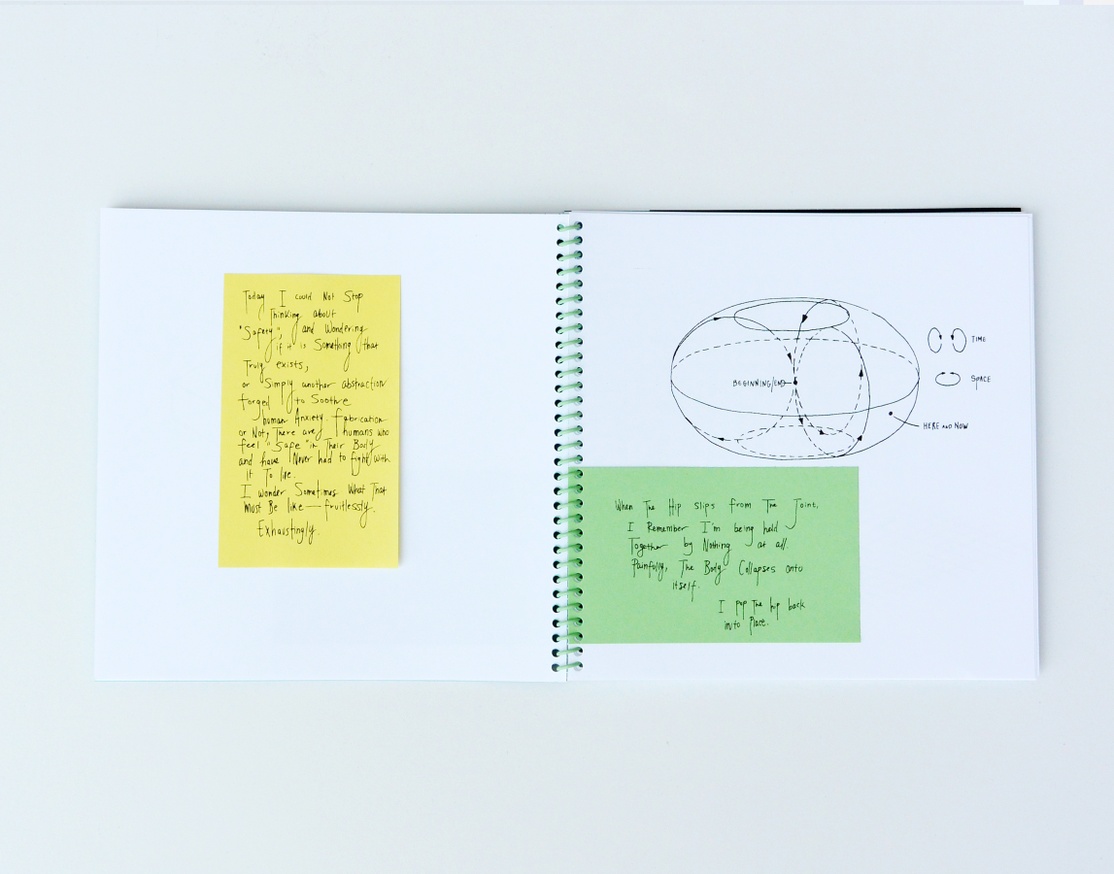 Today I could Not Stop
Thinking about
"Safety", and Wondering
if it is Something that
Truly exists,
or Simply another abstraction
forged to Soothe
human Anxiety. fabrication
or Not, There are humans who
feel "Safe" in Their Body
and have Never had to fight with
it To live.
I wonder Sometimes What That
Must Be like — fruitlessly.
Exhaustingly.
BEGINNING/END
TIME
SPACE
HERE AND NOW
When The Hip slips from The Joint,
I Remember I'm being held
Together by Nothing at all.
Painfully, The Body Collapses onto
itself.
I pop The hip back
into Place.